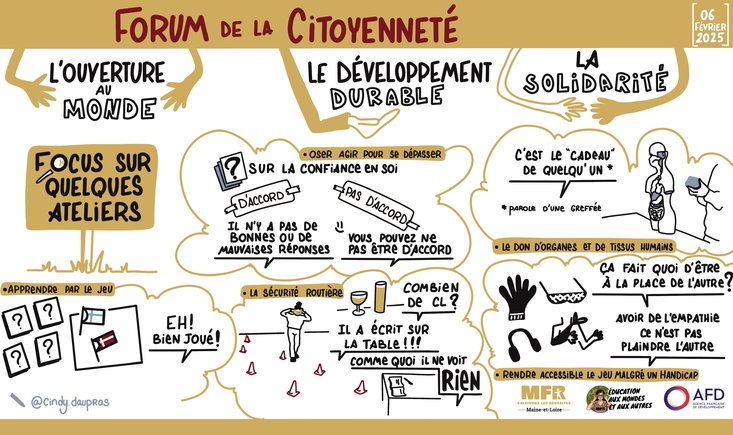 FORUM DE LA CITOYENNETÉ
[06
FÉVRIER
2025]
L'OUVERTURE
AU
MONDE
LE DÉVELOPPEMENT
DURABLE
LA
SOLIDARITÉ
FOCUS SUR
QUELQUES
ATELIERS
• OSER AGIR POUR SE DÉPASSER
?
SUR LA CONFIANCE EN SOI
D'ACCORD
PAS D'ACCORD
IL N'Y A PAS DE
BONNES OU DE
MAUVAISES RÉPONSES
=)
VOUS POUVEZ NE
PAS ÊTRE D'ACCORD
C'EST LE "CADEAU"
DE QUELQU'UN *
* PAROLE D'UNE GREFFÉE
• LE DON D'ORGANES ET DE TISSUS HUMAINS
• APPRENDRE PAR LE JEU
?
?
?
?
EH!
BIEN JOUÉ!
• LA SÉCURITÉ ROUTIÈRE
COMBIEN
DE CL?
IL A ÉCRIT SUR
LA TABLE!!!
COMME QUOI IL NE VOIT
RIEN
ÇA FAIT QUOI D'ÊTRE
À LA PLACE DE L'AUTRE?
AVOIR DE L'EMPATHIE
CE N'EST PAS
PLAINDRE L'AUTRE
• RENDRE ACCESSIBLE LE JEU MALGRÉ UN HANDICAP
@Cindy.daupras
MFR
CULTIVONS LES RÉUSSITES
Maine-et-Loire
ÉDUCATION
AUX MONDES
ET AUX AUTRES
AFD
AGENCE FRANÇAISE
DE DÉVELOPPEMENT